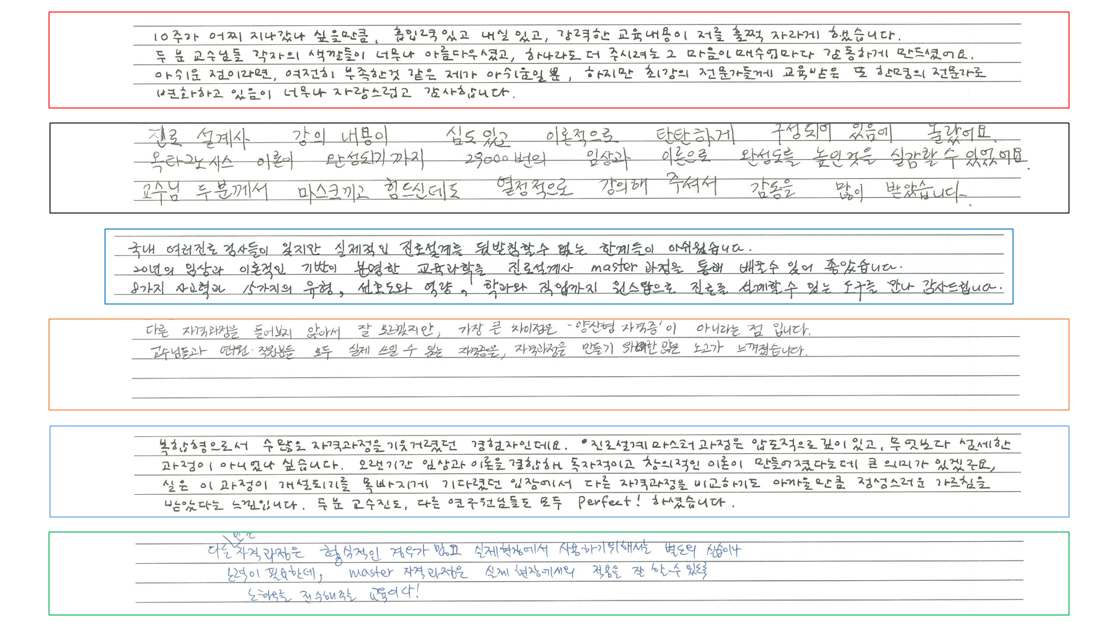 10주가 어찌 지나갔나 싶을만큼, 흡입력있고 내실 있고, 강력한 교육내용이 저를 훌쩍 자라게 했습니다.
두 분 교수님들 각자의 색깔들이 너무나 아름다우셨고, 하나라도 더 주시려는 그 마음이 매수업마다 감동하게 만드셨어요.
아쉬운 점이라면, 여전히 부족한것 같은 제가 아쉬운일뿐, 하지만 최강의 전문가들께 교육받은 또 한명의 전문가로
변화하고 있음이 너무나 자랑스럽고 감사합니다.
진로 설계사 강의 내용이 심도있고 이론적으로 탄탄하게 구성되어 있음에 놀랐어요.
옥타그노시스 이론이 완성되기까지 29000번의 임상과 이론으로 완성도를 높인것을 실감할 수 있었어요.
교수님 두분께서 마스크끼고 힘드신데도 열정적으로 강의해 주셔서 감동을 많이 받았습니다.
국내 여러진로 강사들이 있지만 실제적인 진로설계를 뒷받침할수 없는 한계들이 아쉬웠습니다.
20년의 임상과 이론적인 기반이 분명한 교육과학을 진로설계사 master 과정을 통해 배울수 있어 좋았습니다.
8가지 사고력과 15가지의 유형, 선호도와 역량, 학과와 직업까지 원스탑으로 진로를 설계할수 있는 도구를 만나 감사드립니다.
다른 자격과정을 들어보지 않아서 잘 모르겠지만, 가장 큰 차이점은 '양산형 자격증'이 아니라는 점 입니다.
교수님들과 연구원·직원분들 모두 실제 쓰일 수 있는 자격증을, 자격과정을 만들기 위해 많은 노고가 느껴졌습니다.
복합형으로서 수많은 자격과정을 기웃거렸던 경험자인데요. 진로설계마스터과정은 압도적으로 깊이 있고, 무엇보다 섬세한
과정이 아니었나 싶습니다. 오랜기간 임상과 이론을 결합하여 독자적이고 창의적인 이론이 만들어졌다는데 큰 의미가 있겠구요,
실은 이 과정이 개설되기를 목빠지게 기다렸던 입장에서 다른 자격과정을 비교하기도 아까울만큼 정성스러운 가르침을
받았다는 느낌입니다. 두분 교수진도, 다른 연구원님들도 모두 Perfect! 하셨습니다.
다른 자격과정은 형식적인 경우가 많고 실제현장에서 사용하기위해서는 별도의 실습이나
노력이 필요한데, master 자격과정은 실제 현장에서의 적용을 잘 할수 있도록
노하우를 전수해주는 교육이다!